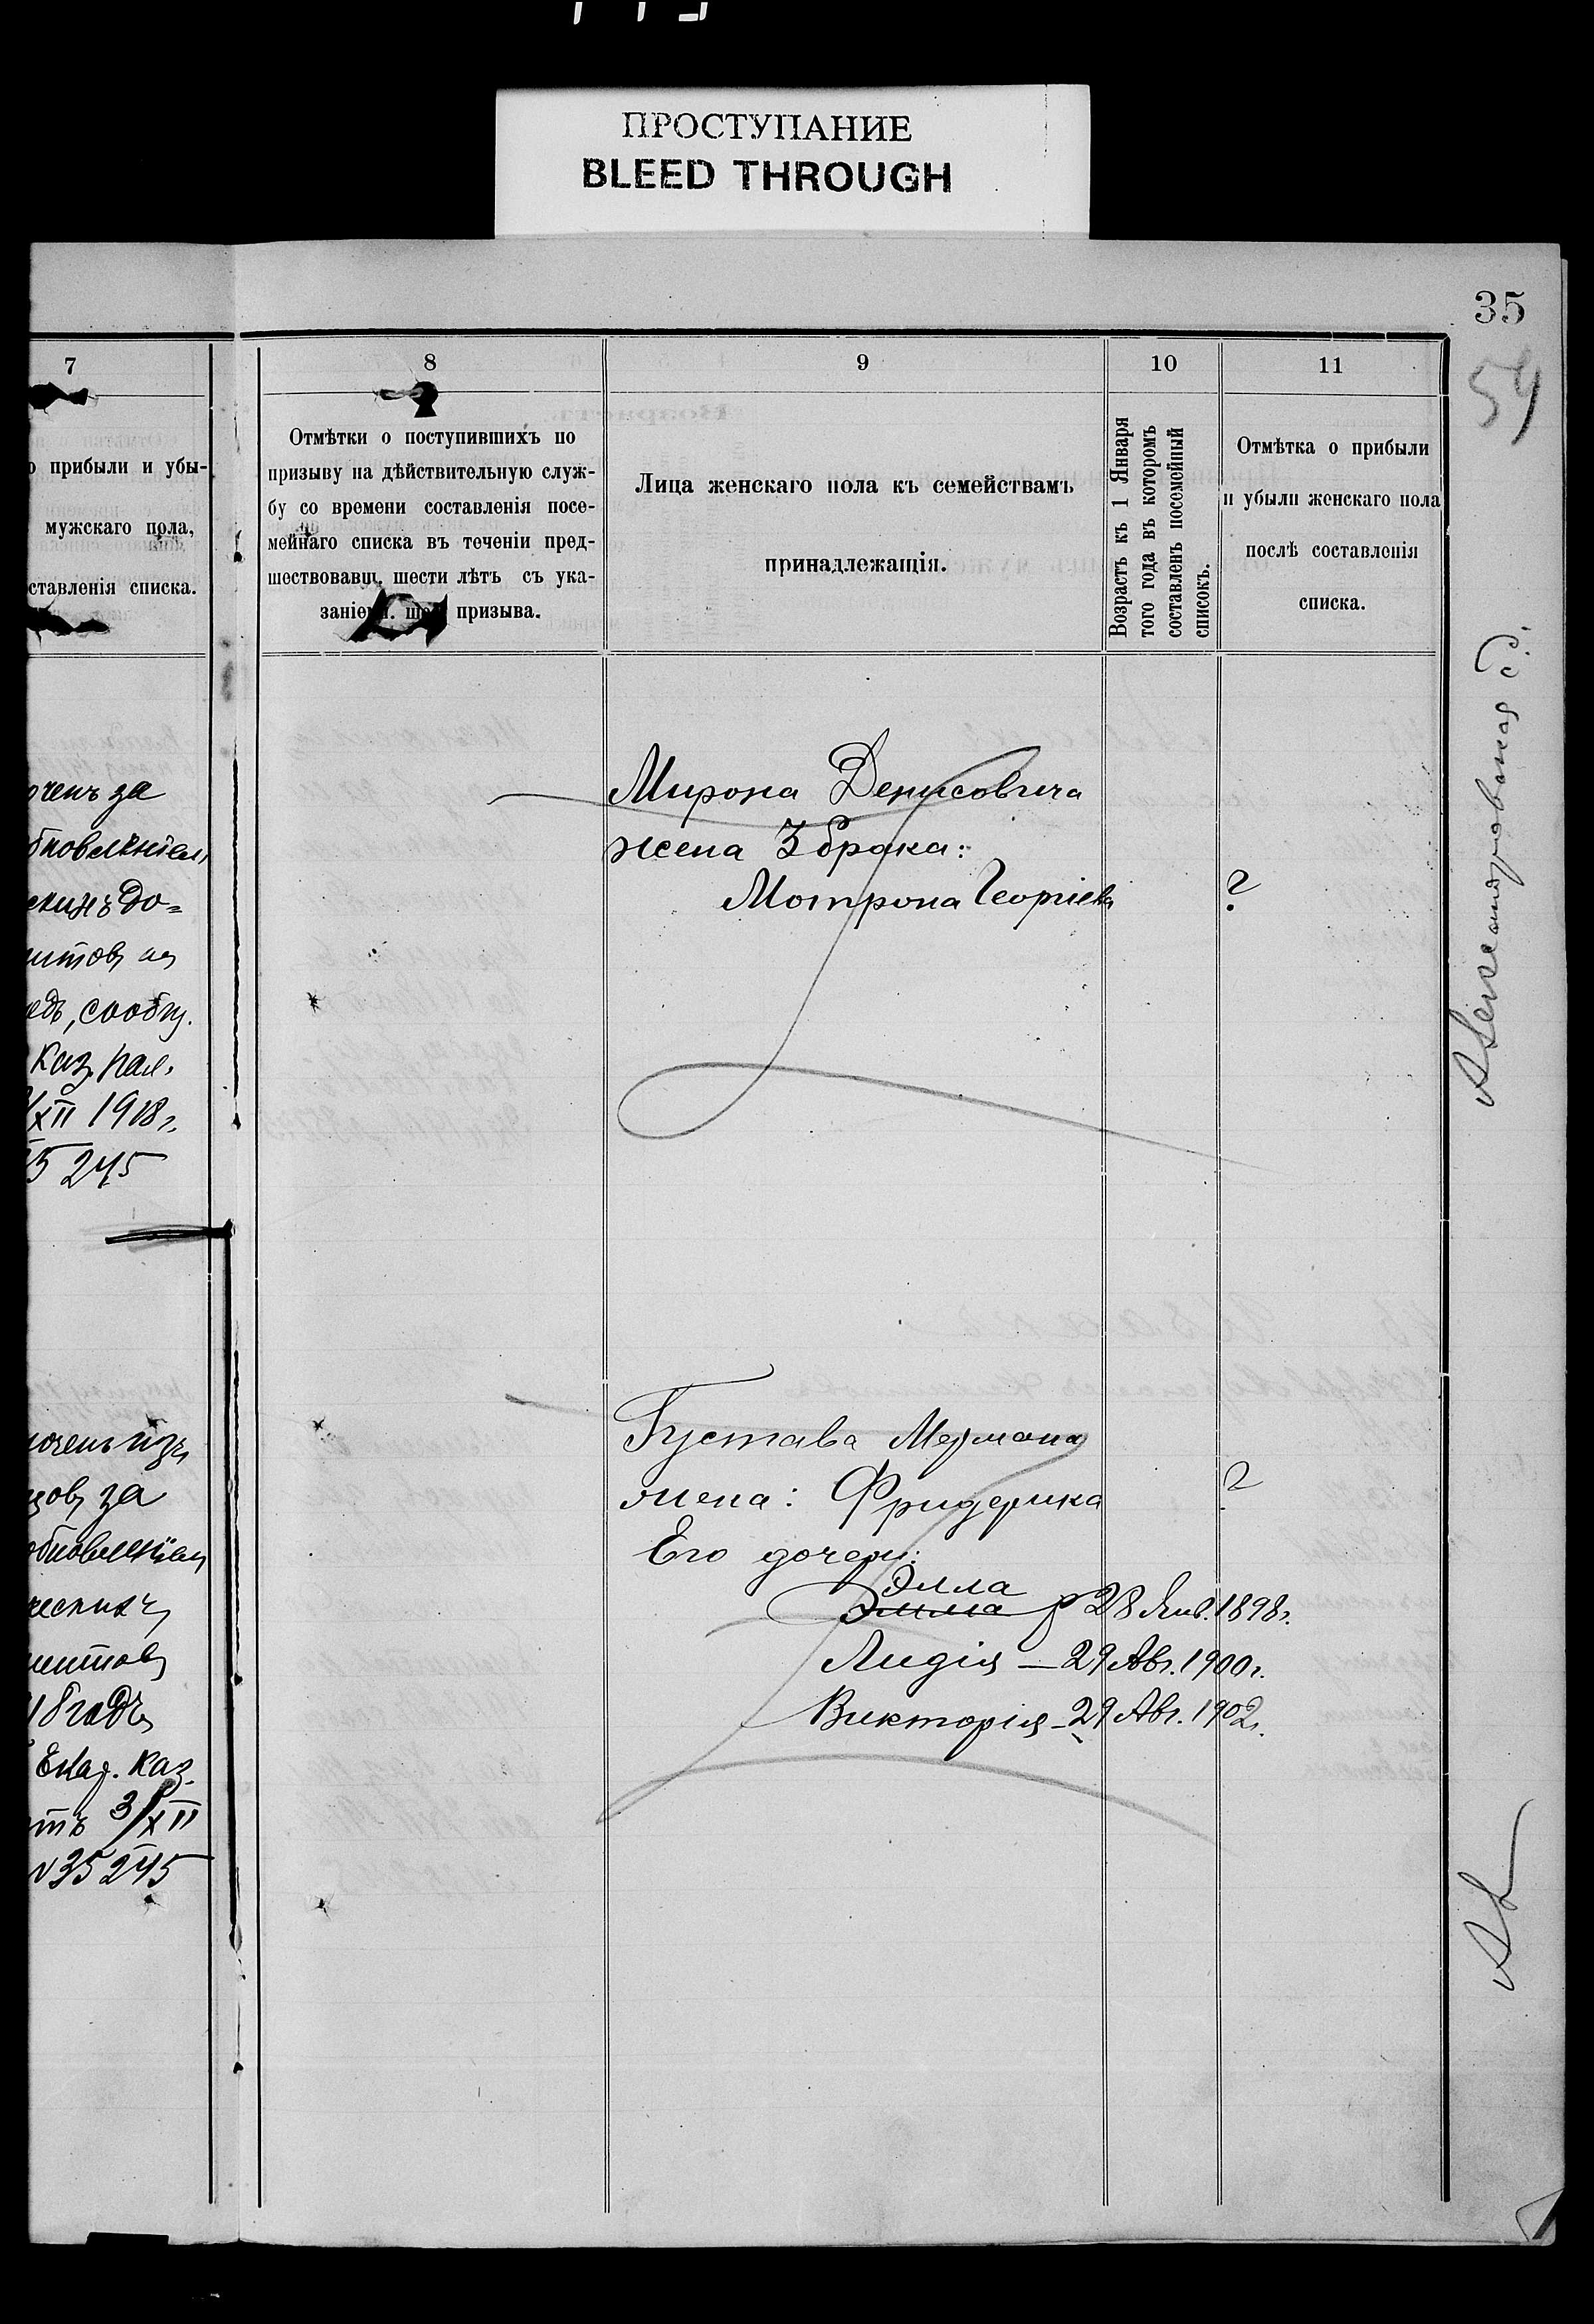 ПРОСТУПАНИЕ
BLEED THROUGH
35
54
7
прибыли и убы-
мужскаго пола,
ставленія списка.
8
Отмѣтки о поступившихъ по
призыву на дѣйствительную служ-
бу со времени составленія посе-
мейнаго списка въ теченіи пред-
шествовавш. шести лѣтъ съ ука-
заніем. призыва.
9
Лица женскаго пола къ семействамъ
принадлежащія.
10
Возрастъ къ 1 Января
того года въ которомъ
составленъ посемейный
списокъ.
11
Отмѣтка о прибыли
и убыли женскаго пола
послѣ составленія
списка.
ченъ за
бновленіем
до=
сообщ.
Каз. пал.
XII 1918 г.
35245
оченъ изъ
за
обновленіем
18 годъ
Екат. Каз.
отъ 3/XII
№35245
Мирона Денисовича
жена 3 брака:
Мотрона Георгіева
?
Густава Мермана
жена: Фридерика
?
Его дочери:
Элла
Эмма р 28 Янв. 1898 г.
Лидія — 29 Авг. 1900 г.
Викторія — 29 Авг. 1902 г.
Александровская